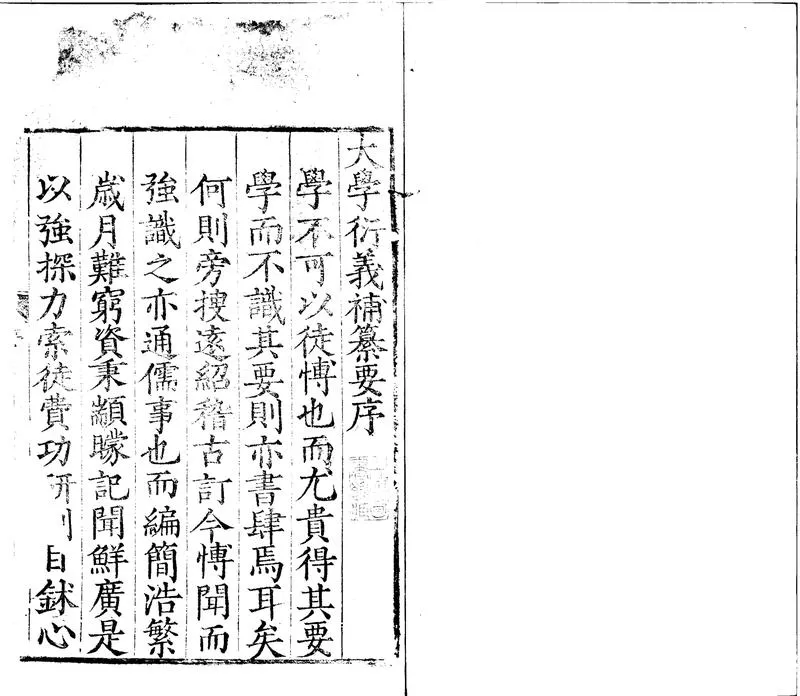 大學衍義補纂要序
學不可以徒愽也而尤貴得其要
學而不識其要則亦書肆焉耳矣
何則旁搜遠紹稽古訂今愽聞而
強識之亦通儒事也而編簡浩繁
歲月難窮資秉顓矇記聞鮮廣是
以強探力索徒費功研 目鉥心